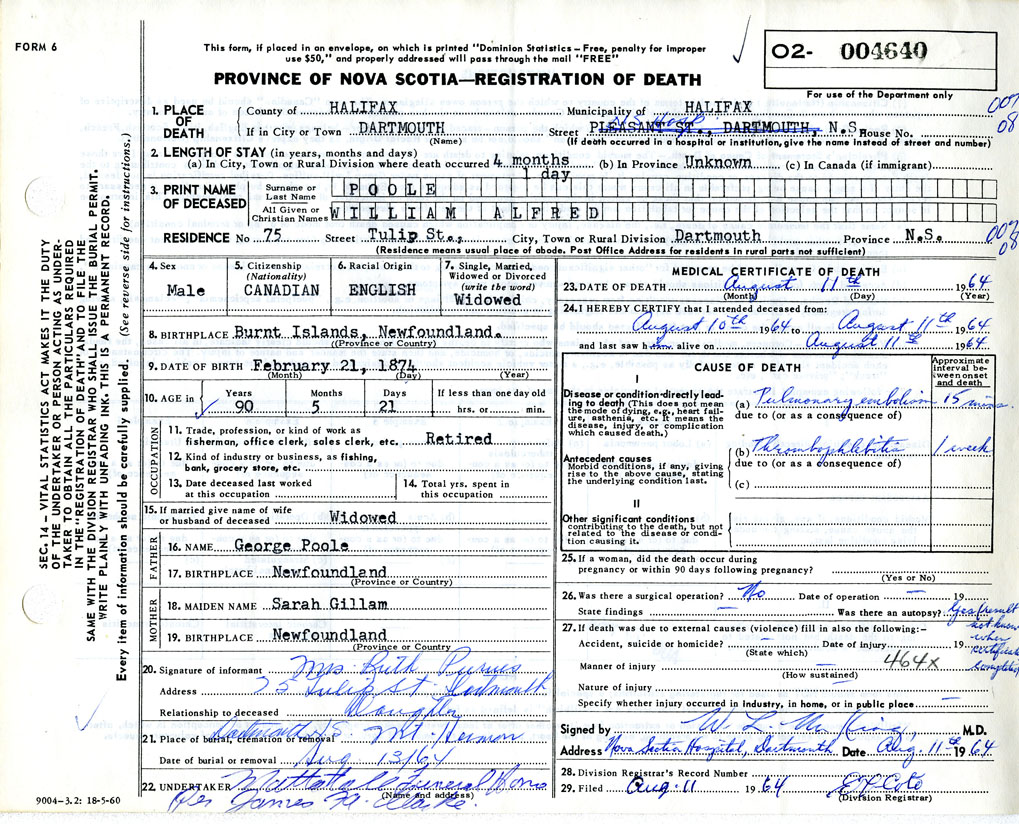 FORM 6
This form, if placed in an envelope, on which is printed "Dominion Statistics – Free, penalty for improper
use $50," and properly addressed will pass through the mail "FREE"
PROVINCE OF NOVA SCOTIA—REGISTRATION OF DEATH
02- 004640
For use of the Department only
1. PLACE OF DEATH
County of HALIFAX Municipality of HALIFAX
007
08
N.S. Hosp
If in City or Town DARTMOUTH Street PLEASANT ST., DARTMOUTH, N.S. House No.
(Name) (If death occurred in a hospital or institution, give the name instead of street and number)
2. LENGTH OF STAY (in years, months and days)
(a) In City, Town or Rural Division where death occurred 4 months (b) In Province Unknown (c) In Canada (if immigrant)
1 day
3. PRINT NAME OF DECEASED
Surname or Last Name POOLE
All Given or Christian Names WILLIAM ALFRED
RESIDENCE No 75 Street Tulip St., City, Town or Rural Division Dartmouth Province N.S.
007
08
(Residence means usual place of abode. Post Office Address for residents in rural parts not sufficient)
4. Sex Male
5. Citizenship (Nationality) CANADIAN
6. Racial Origin ENGLISH
7. Single, Married, Widowed or Divorced (write the word) Widowed
8. BIRTHPLACE Burnt Islands, Newfoundland.
(Province or Country)
9. DATE OF BIRTH February 21, 1874
(Month) (Day) (Year)
10. AGE in Years 90 Months 5 Days 21 If less than one day old hrs. or min.
OCCUPATION
11. Trade, profession, or kind of work as
fisherman, office clerk, sales clerk, etc. Retired
12. Kind of industry or business, as fishing,
bank, grocery store, etc.
13. Date deceased last worked
at this occupation
14. Total yrs. spent in
this occupation
15. If married give name of wife
or husband of deceased Widowed
FATHER
16. NAME George Poole
17. BIRTHPLACE Newfoundland
(Province or Country)
MOTHER
18. MAIDEN NAME Sarah Gillam
19. BIRTHPLACE Newfoundland
(Province or Country)
20. Signature of informant Mrs Ruth Purvis
Address 75 Tulip St. Dartmouth
Relationship to deceased Daughter
21. Place of burial, cremation or removal Dartmouth N.S. Mt. Hermon
Date of burial or removal Aug 13/64
22. UNDERTAKER Mattatall Funeral Home
(Name and address)
Per James A.
9004–3.2: 18-5-60
MEDICAL CERTIFICATE OF DEATH
23. DATE OF DEATH August 11th 1964
(Month) (Day) (Year)
24. I HEREBY CERTIFY that I attended deceased from:
August 10th 1964 to August 11th 1964
and last saw him alive on August 11th 1964
CAUSE OF DEATH
Approximate interval between onset and death
I
Disease or condition directly leading to death (This does not mean
the mode of dying, e.g., heart failure, asthenia, etc. It means the
disease, injury, or complication
which caused death.)
(a) Pulmonary embolism 15 mins.
due to (or as a consequence of)
Antecedent causes
Morbid conditions, if any, giving
rise to the above cause, stating
the underlying condition last.
(b) Thrombophlebitis 1 week
due to (or as a consequence of)
(c)
II
Other significant conditions
contributing to the death, but not
related to the disease or condition causing it.
25. If a woman, did the death occur during
pregnancy or within 90 days following pregnancy?
(Yes or No)
26. Was there a surgical operation? No Date of operation — 19
State findings — Was there an autopsy? Yes (result
not known
when
certificate
completed
27. If death was due to external causes (violence) fill in also the following:–
Accident, suicide or homicide? — Date of injury 19
(State which)
464x
Manner of injury —
(How sustained)
Nature of injury
Specify whether injury occurred in Industry, in home, or in public place —
Signed by M.D.
Address Nova Scotia Hospital, Dartmouth Date Aug. 11th 1964
28. Division Registrar's Record Number
29. Filed Aug. 11 1964
(Division Registrar)
SEC. 14 – VITAL STATISTICS ACT MAKES IT THE DUTY
OF THE UNDERTAKER OR PERSON ACTING AS UNDERTAKER TO OBTAIN ALL THE PARTICULARS REQUIRED
IN THE "REGISTRATION OF DEATH" AND TO FILE THE
SAME WITH THE DIVISION REGISTRAR WHO SHALL ISSUE THE BURIAL PERMIT.
WRITE PLAINLY WITH UNFADING INK. THIS IS A PERMANENT RECORD.
Every item of information should be carefully supplied. (See reverse side for instructions.)